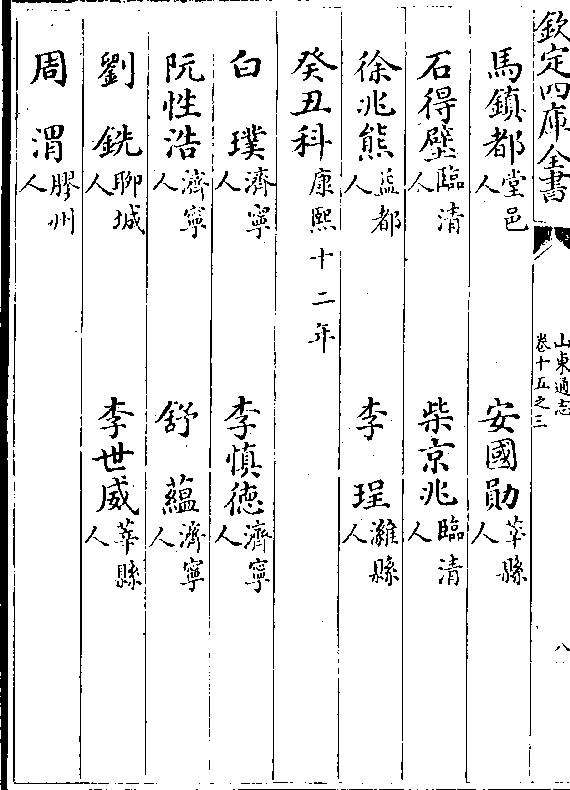 欽定四庫全書
山東通志
卷十五之三
八
馬鎮都堂邑人 安國勛莘縣人
石得璧臨清人 柴京兆臨清人
徐兆熊益都人 李珵濰縣人
癸丑科康熙十二年
白璞濟寧人 李慎德濟寧人
阮性浩濟寧人 舒蘊濟寧人
劉銑聊城人 李世威莘縣人
周渭膠州人